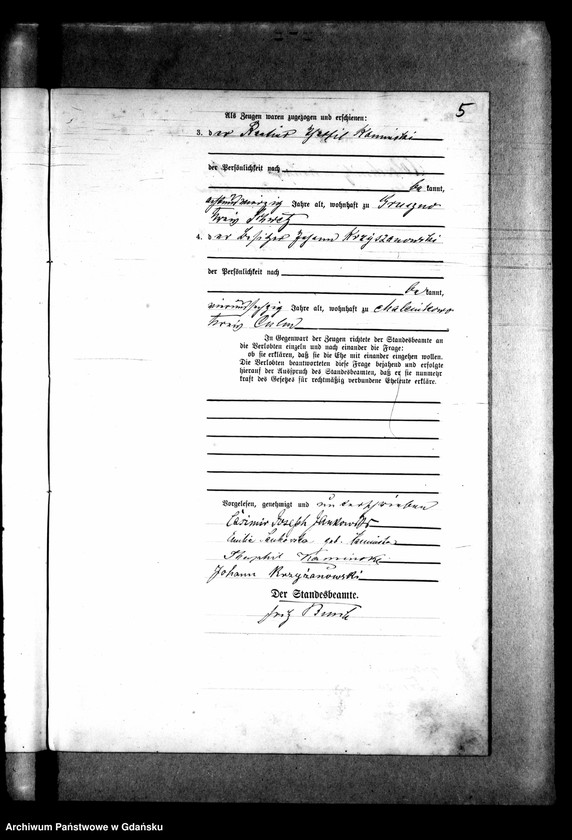 5
Als Zeugen waren zugezogen und erschienen:
3. der Theophil Kaminski
der Persönlichkeit nach
be kannt,
achtundvierzig Jahre alt, wohnhaft zu Gruczno
Kreis Schwetz
4. der Besitzer Johann Krzyżanowski
der Persönlichkeit nach
be kannt,
vierundsechzig Jahre alt, wohnhaft zu
Kreis Culm
In Gegenwart der Zeugen richtete der Standesbeamte an
die Verlobten einzeln und nach einander die Frage:
ob sie erklären, daß sie die Ehe mit einander eingehen wollen.
Die Verlobten beantworteten diese Frage bejahend und erfolgte
hierauf der Ausspruch des Standesbeamten, daß er sie nunmehr
kraft des Gesetzes für rechtmäßig verbundene Eheleute erkläre.
Vorgelesen, genehmigt und unterschrieben
Casimir Joseph Jankowski
geb. Kaminska
Theophil Kaminski
Johann Krzyżanowski
Der Standesbeamte.
Fritz
Archiwum Państwowe w Gdańsku